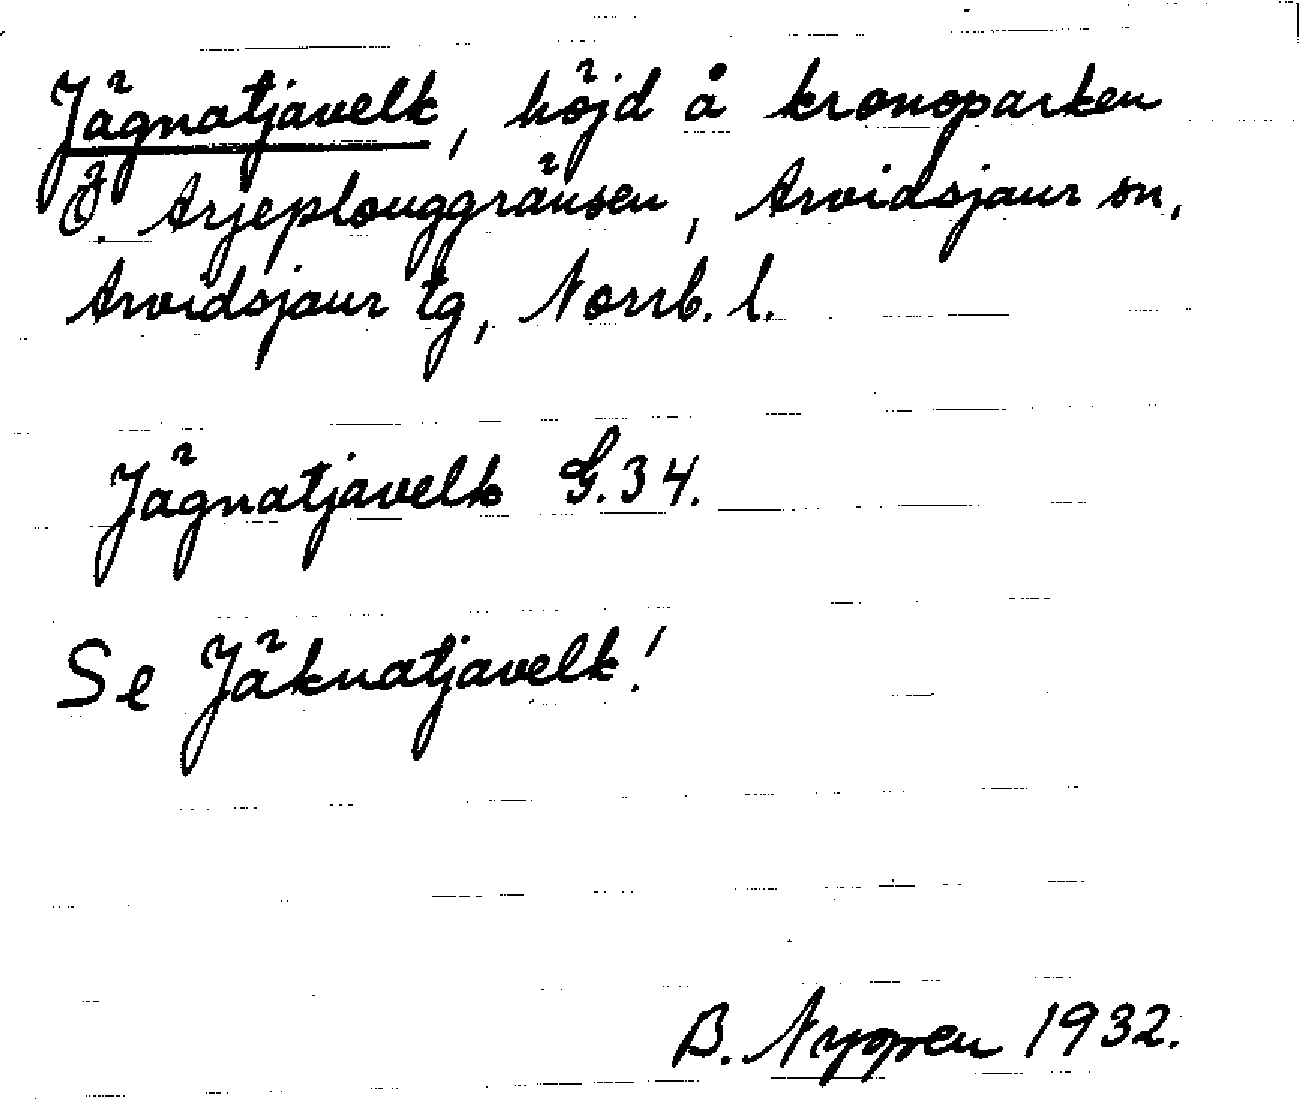 Jägnatjavelk, höjd å kronoparken
Ö. Arjeplouggränsen, Arvidsjaur sn,
Arvidsjaur tg, Norrb. l.
Jägnatjavelk G.34.
Se Jäknatjavelk!
B. Nygren 1932.